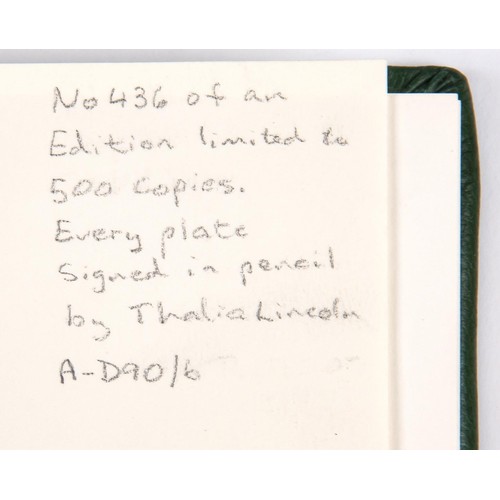 No 436 of an
Edition limited to
500 Copies.
Every plate
Signed in pencil
by Thalia Lincoln
A-D90/6